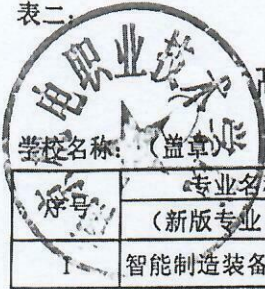 表二:
电职业技术学
学校名称:（盖章）
序号
专业名
（新版专业
1
智能制造装备